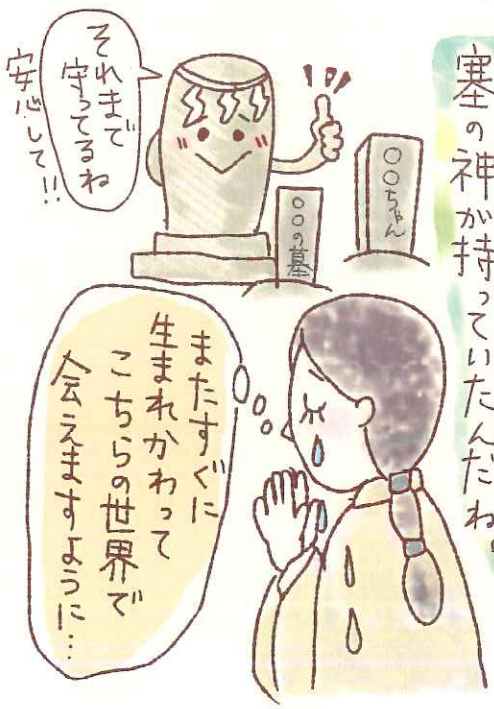 塞の神が持っていたんだね。
それまで
守ってるね
安心して!!
○○ちゃん
○○の墓
またすぐに
生まれかわって
こちらの世界で
会えますように…